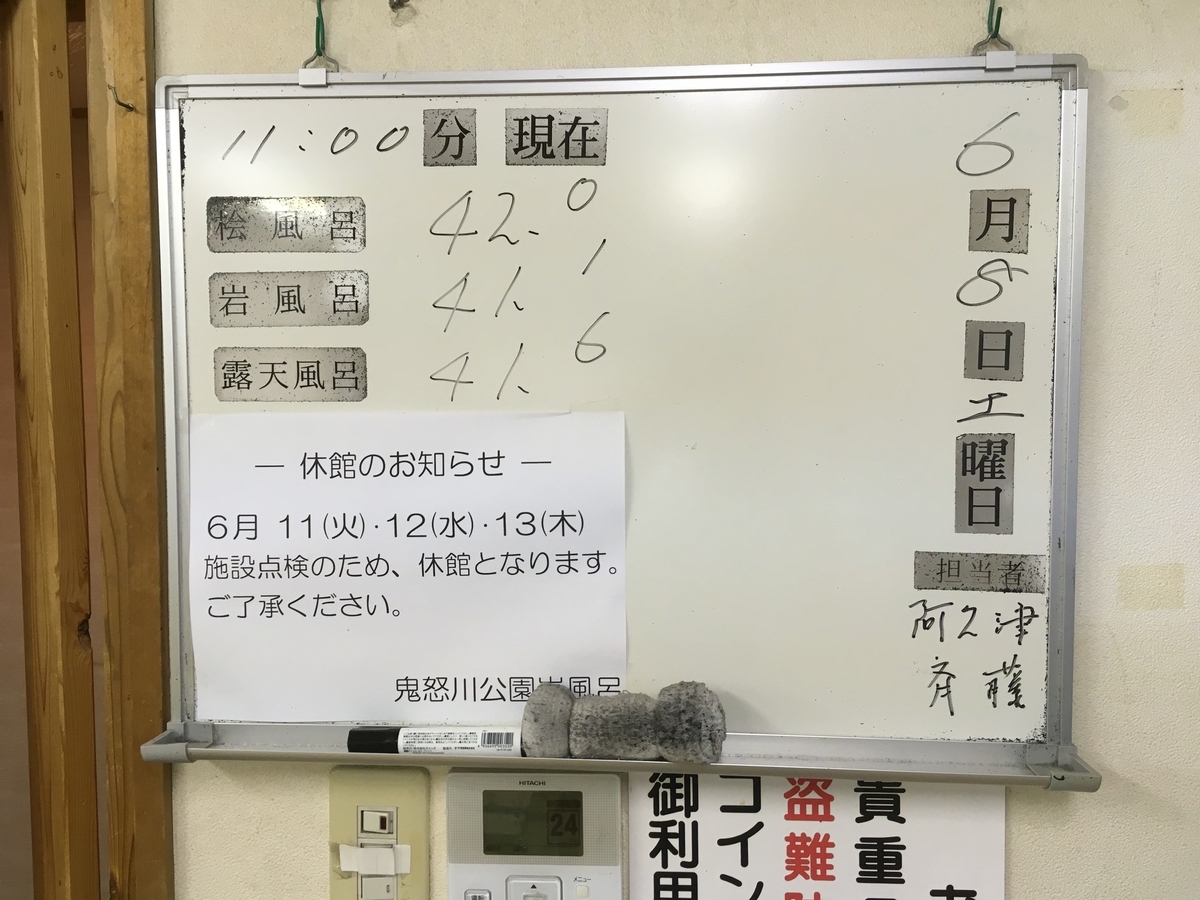 11:00 分 現在
桧風呂 42.0
岩風呂 41.1
露天風呂 41.6
6
月
8
日
土
曜
日
担当者
阿久津
斉藤
― 休館のお知らせ ―
6月 11(火)・12(水)・13(木)
施設点検のため、休館となります。
ご了承ください。
鬼怒川公園岩風呂
HITACHI
24
メニュー
貴重
盗難
コイン
御利用